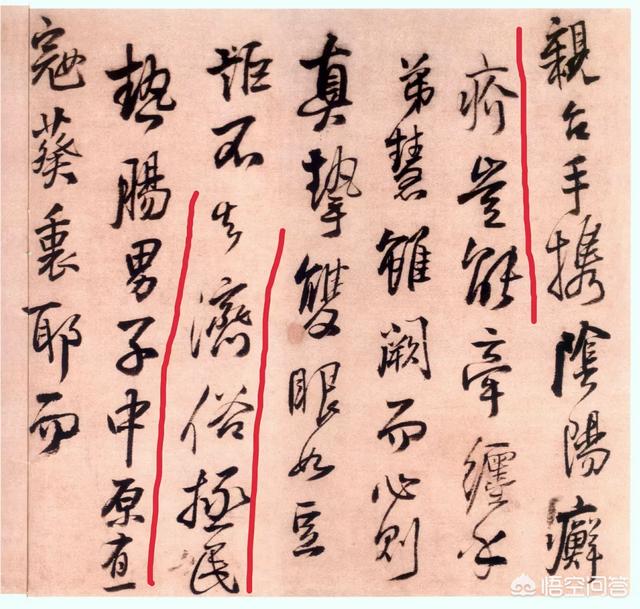 親台手攜陰陽癬
疥豈能牽纏乎
弟慧雖闕而心則
真摯雙眼如豆
詎不知濟俗拯民
熱腸男子中原有一
寇葵裏耶而
悟空问答